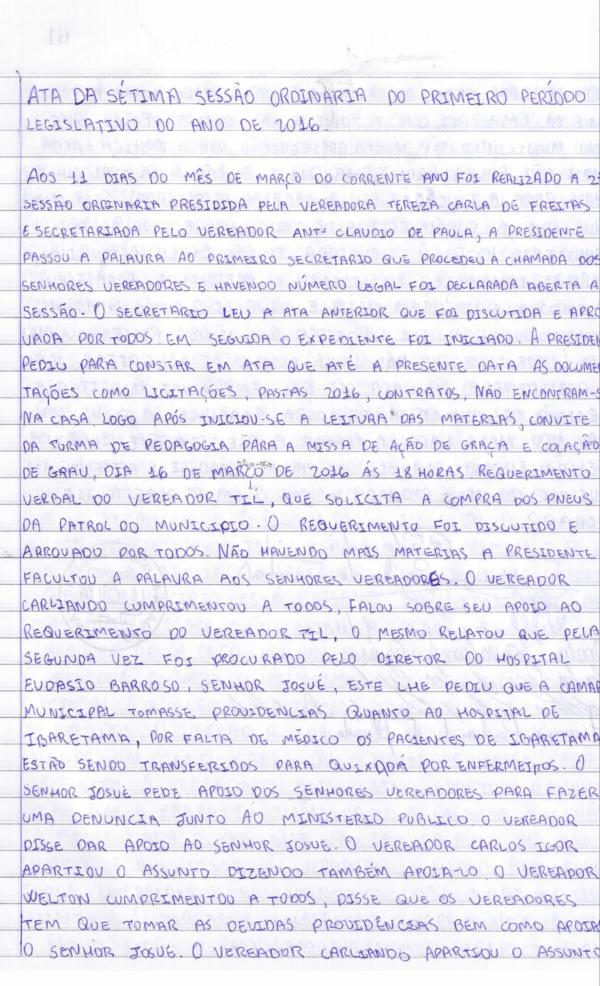 ATA DA SÉTIMA SESSÃO ORDINARIA DO PRIMEIRO PERÍODO
LEGISLATIVO DO ANO DE 2016.
AOS 11 DIAS DO MÊS DE MARÇO DO CORRENTE ANO FOI REALIZADO A
SESSÃO ORDINARIA PRESIDIDA PELA VEREADORA TEREZA CARLA DE FREITAS
E SECRETARIADA PELO VEREADOR ANTº CLAUDIO DE PAULA, A PRESIDENTE
PASSOU A PALAVRA AO PRIMEIRO SECRETARIO QUE PROCEDEU A CHAMADA DOS
SENHORES VEREADORES E HAVENDO NÚMERO LEGAL FOI DECLARADA ABERTA A
SESSÃO. O SECRETARIO LEU A ATA ANTERIOR QUE FOI DISCUTIDA E APRO
VADA POR TODOS EM SEGUIDA O EXPEDIENTE FOI INICIADO. A PRESIDEN
PEDIU PARA CONSTAR EM ATA QUE ATÉ A PRESENTE DATA AS DOCUMEN
TAÇÕES COMO LICITAÇÕES, PASTAS 2016, CONTRATOS, NÃO ENCONTRAM-S
NA CASA. LOGO APÓS INICIOU-SE A LEITURA DAS MATERIAS, CONVITE
DA TURMA DE PEDAGOGIA PARA A MISSA DE AÇÃO DE GRAÇA E COLAÇÃO
DE GRAU, DIA 16 DE MARÇO DE 2016 ÁS 18 HORAS. REQUERIMENTO
VERBAL DO VEREADOR TIL, QUE SOLICITA A COMPRA DOS PNEUS
DA PATROL DO MUNICIPIO. O REQUERIMENTO FOI DISCUTIDO E
ARROVADO POR TODOS. NÃO HAVENDO MAIS MATERIAS A PRESIDENTE
FACULTOU A PALAVRA AOS SENHORES VEREADORES. O VEREADOR
CARLIANDO CUMPRIMENTOU A TODOS, FALOU SOBRE SEU APOIO AO
REQUERIMENTO DO VEREADOR TIL, O MESMO RELATOU QUE PELA
SEGUNDA VEZ FOI PROCURADO PELO DIRETOR DO HOSPITAL
EUDASIO BARROSO, SENHOR JOSUÉ, ESTE LHE PEDIU QUE A CAMAR
MUNICIPAL TOMASSE PROVIDENCIAS QUANTO AO HOSPITAL DE
IBARETAMA, POR FALTA DE MÉDICO OS PACIENTES DE IBARETAMA
ESTÃO SENDO TRANSFERIDOS PARA QUIXADÁ POR ENFERMEIROS. O
SENHOR JOSUÉ PEDE APOIO DOS SENHORES VEREADORES PARA FAZER
UMA DENUNCIA JUNTO AO MINISTERIO PUBLICO O VEREADOR
DISSE DAR APOIO AO SENHOR JOSUE. O VEREADOR CARLOS IGOR
APARTIOU O ASSUNTO DIZENDO TAMBÉM APOIA-LO. O VEREADOR
WELTON CUMPRIMENTOU A TODOS, DISSE QUE OS VEREADORES
TEM QUE TOMAR AS DEVIDAS PROVIDÊNCIAS BEM COMO APOIAR
O SENHOR JOSUE. O VEREADOR CARLIANDO APARTIOU O ASSUNTO